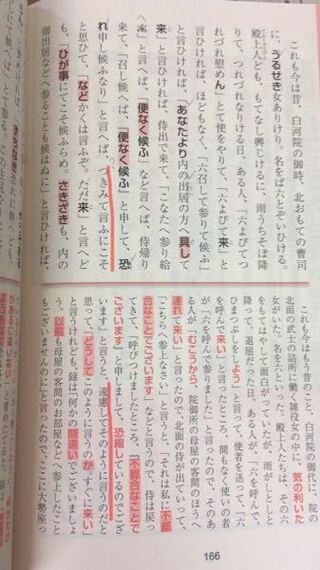 これも今は昔、白河院の御時、北おもての曹司
に、うるせき女ありけり。名をば六とぞいひける。
殿上人ども、もてなし興じけるに、雨うちそぼ降
りて、つれづれなりける日、ある人、「六よびてつ
れづれ慰めん」とて使をやりて、「六よびて来」と
言ひければ、ほどもなく、「六召して参りて候ふ」
と言ひければ、「あなたより内の出居の方へ具して
来」と言ひければ、侍出で来て、「こなたへ参り給
へ」と言へば、「便なく候ふ」など言へば、侍帰り
来て、「召し候へば、『便なく候ふ』と申して、恐
れ申し候ふなり」と言へば、つきみて言ふにこそ
と思ひて、「などかくは言ふぞ。ただ来」と言へど
も、「ひが事にてこそ候ふらめ。さきざきも、内の
御出居などへ参ることも候はぬに」と言ひければ、
これも今はもう昔のこと、白河院の御代に、院の
北面の武士の詰所に働く雑役の女の中に、気の利いた
女がいた。名を六といった。殿上人たちは、その六
をもてはやして面白がっていたが、雨がしとしと
降って、退屈だった日、ある人が、「六を呼んで、
ひまつぶしをしよう」と言って、使者を送って、「六
を呼んで来い」と言ったところ、間もなく使いの者
が、「六を呼んで参りました」と言ったので、そのあ
る人が「むこうから、院御所の母屋の客間のほうへ
連れて来い」と言ったので、北面の侍が出ていって、
「こちらへ参上なさい」と言うと、「それは私に不都
合なことでございます」などと言うので、侍は戻っ
てきて、「呼びつけましたところ、『不都合なことで
ございます』と申しまして、恐縮しているのでござ
います」と言うと、遠慮してそのように言うのだと
思って、「どうしてこのように言うのか。すぐに来い」
と言うけれども、録は「何かの間違いでございましょ
う。以前も母屋の客間のお部屋などへ参上したこと
もございませんのに」と言ったので、ここに大勢座っ
166